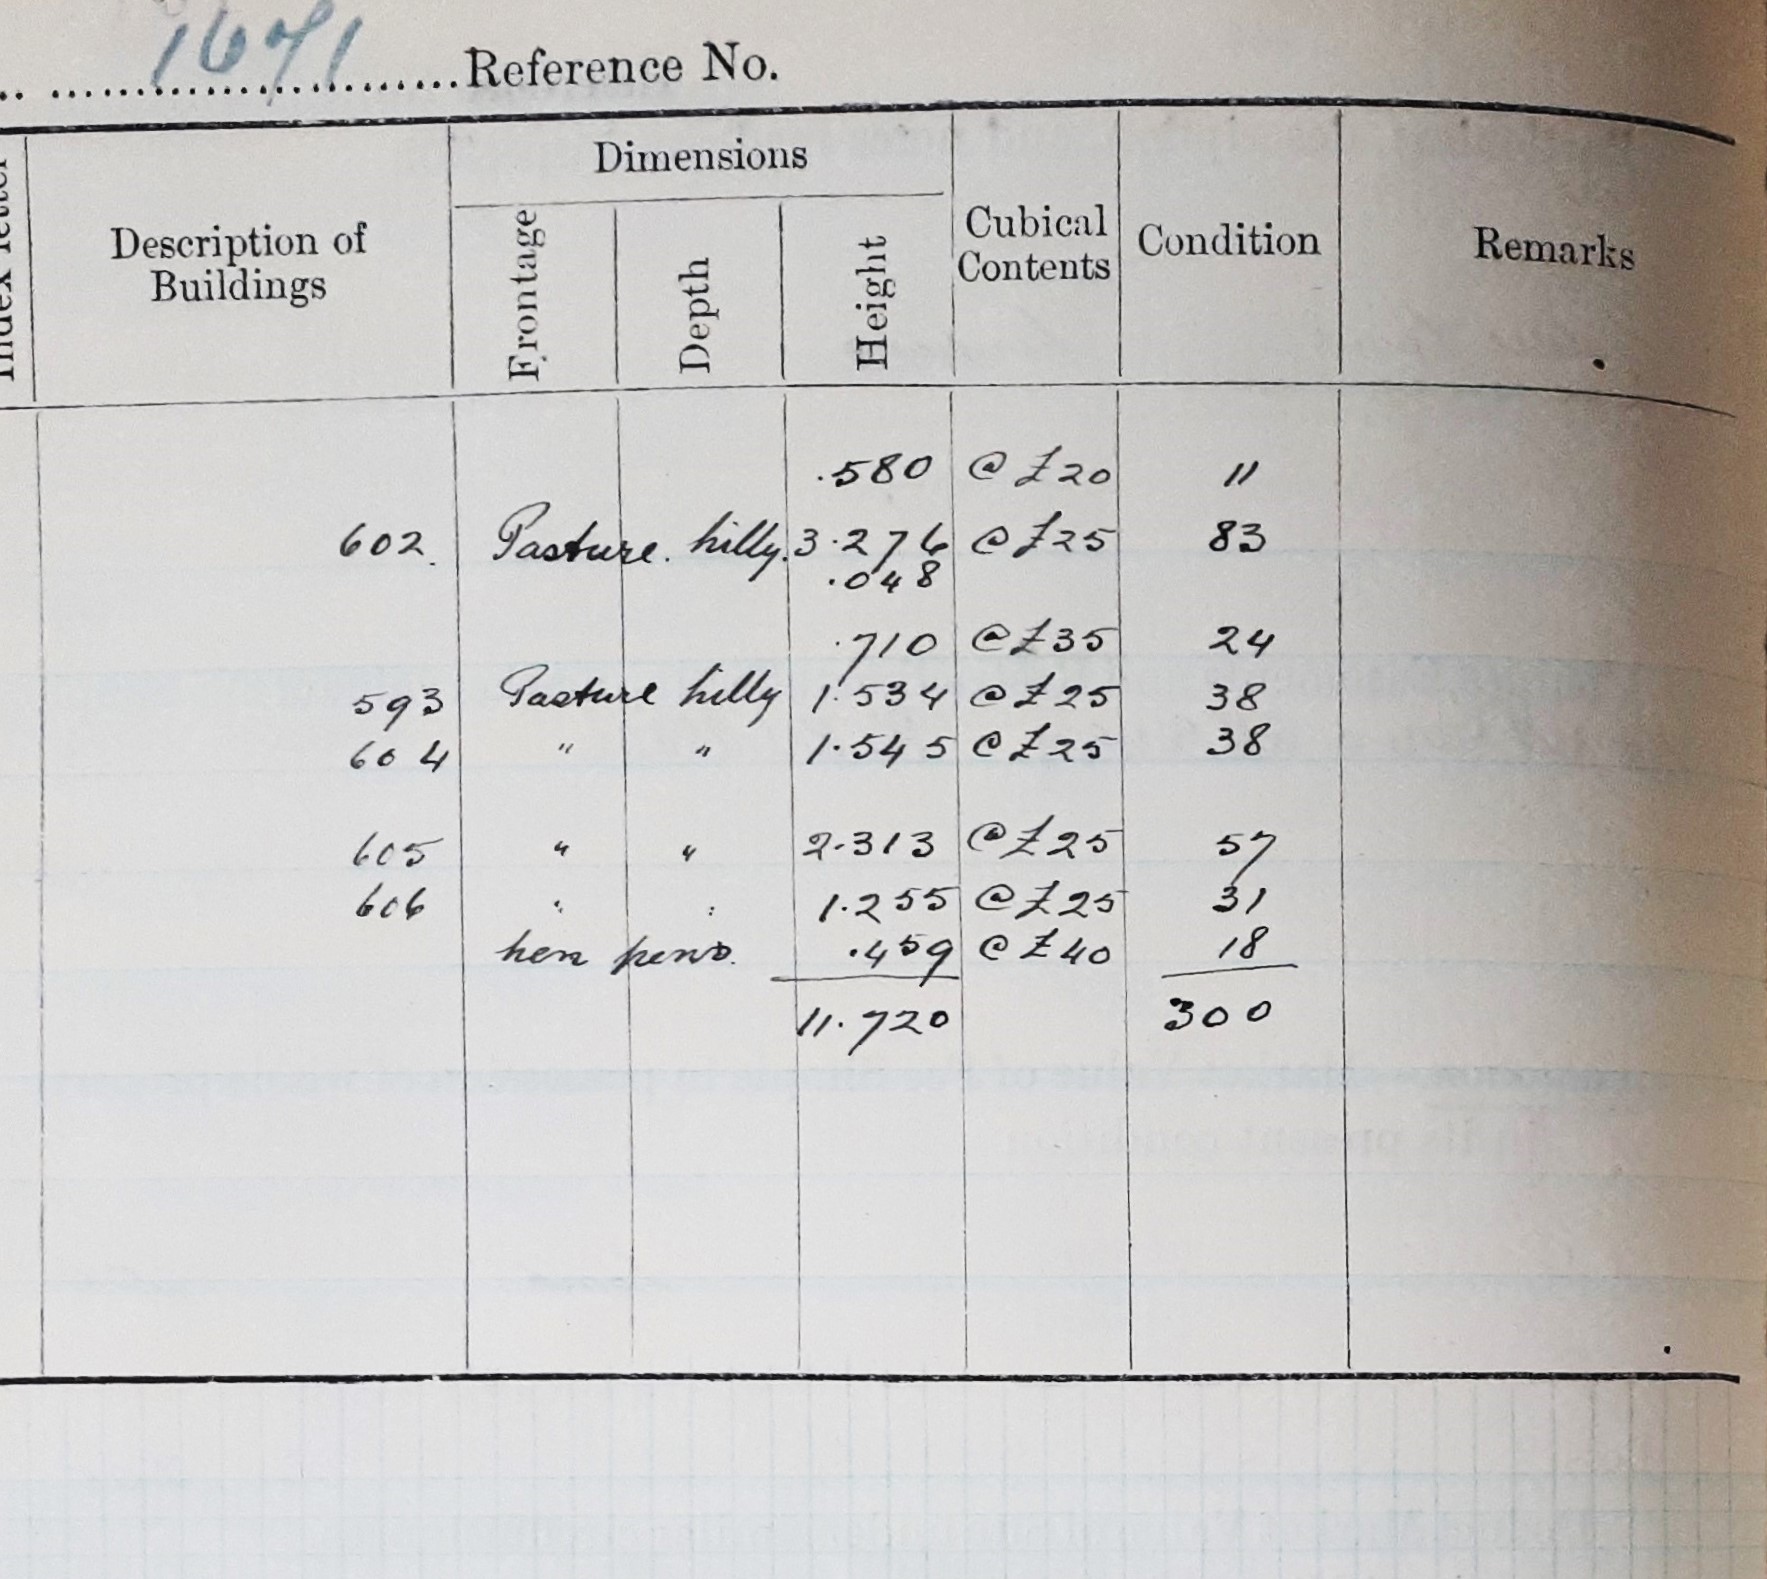 1671 Reference No.
Index letter
Description of Buildings
Dimensions
Frontage
Depth
Height
Cubical Contents
Condition
Remarks
.580 @ £20 11
602. Pasture. hilly. 3.276 @ £25 83
.048
.710 @ £35 24
593 Pasture hilly 1.534 @ £25 38
604 " " 1.545 @ £25 38
605 " " 2.313 @ £25 57
606 " " 1.255 @ £25 31
hen pens. .459 @ £40 18
11.720 300